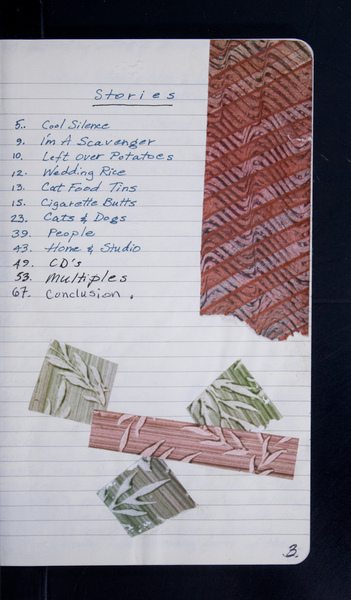 Stories
5. Cool Silence
9. I'm A Scavenger
10. Left Over Potatoes
12. Wedding Rice
13. Cat Food Tins
15. Cigarette Butts
23. Cats & Dogs
39. People
43. Home & Studio
49. CD's
53. Multiples
67. Conclusion.
3